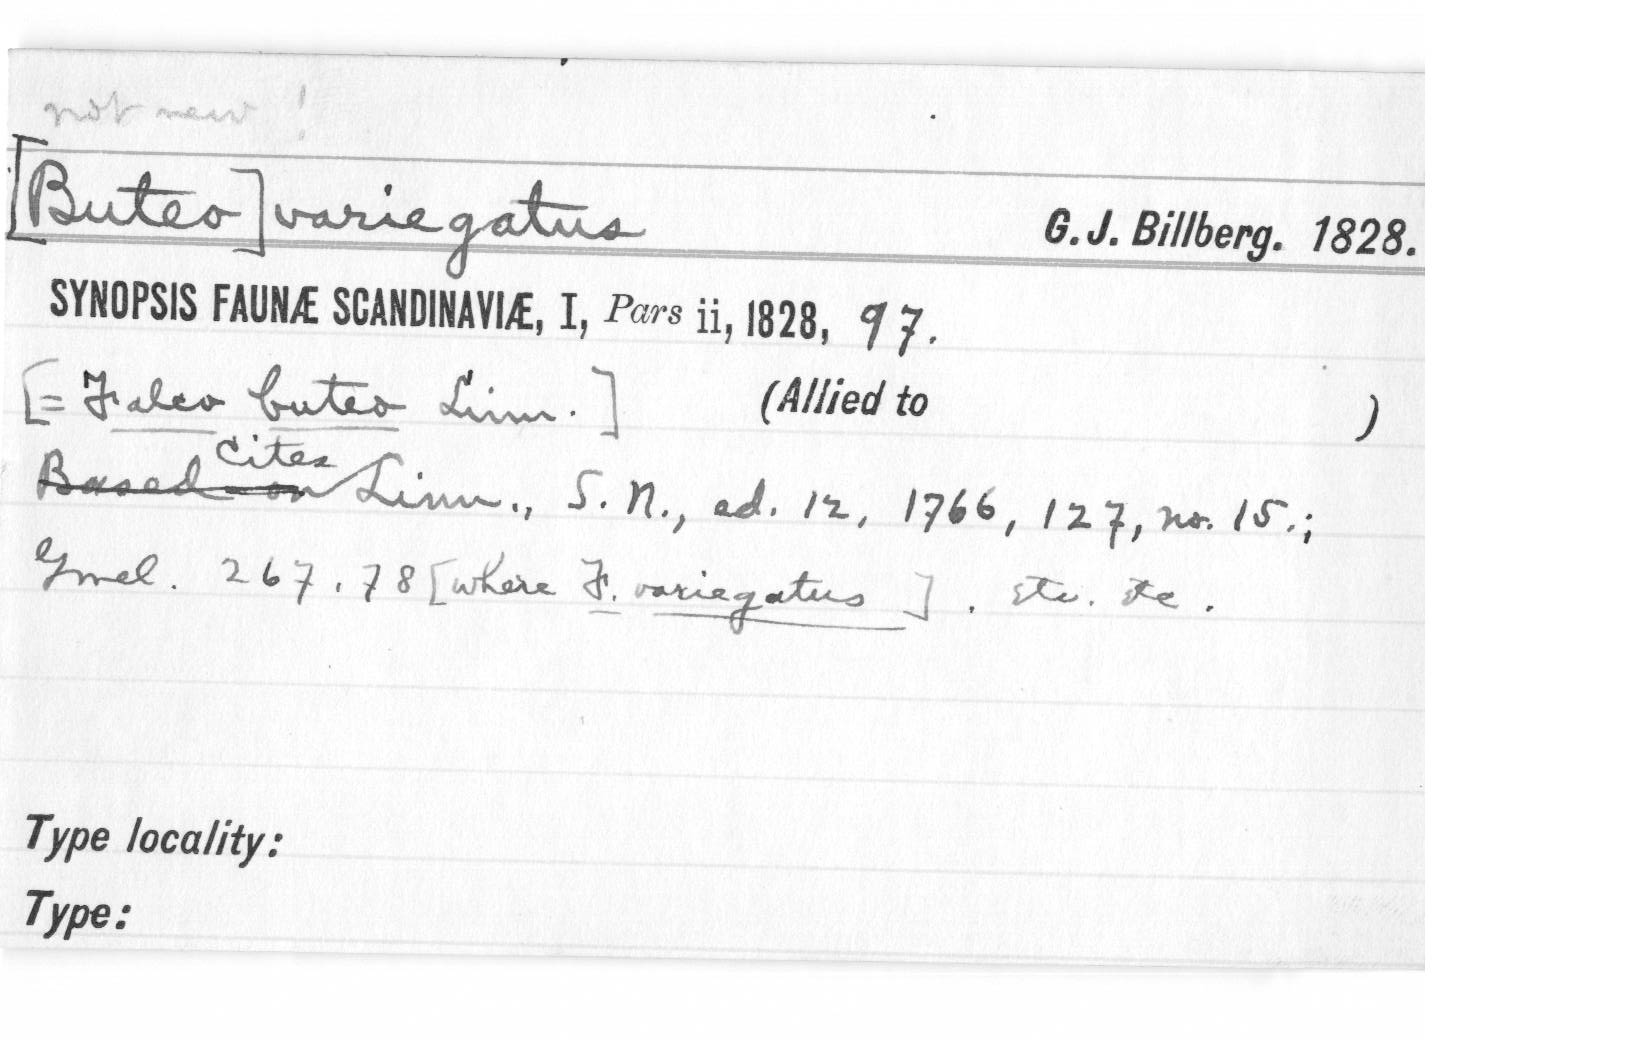 not new !
[Buteo] variegatus G. J. Billberg. 1828.
SYNOPSIS FAUNÆ SCANDINAVIÆ, I, Pars ii, 1828, 97.
[= Falco buteo Linn.] (Allied to )
Based on Cites Linn., S. N., ed. 12, 1766, 127, no. 15.;
Gmel. 267. 78 [where F. variegatus ]. etc. etc.
Type locality:
Type: